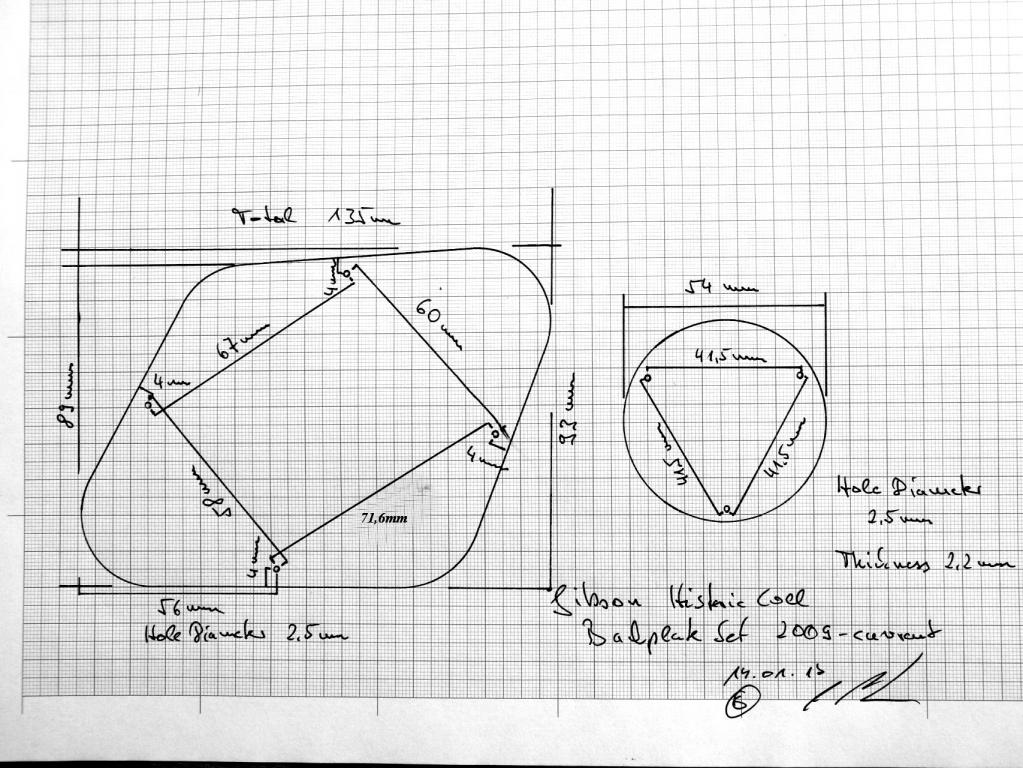 Total 135mm
4mm
60mm
67mm
4mm
89mm
93mm
4mm
58mm
71,6mm
4mm
56 mm
Hole Diameter 2.5mm
54 mm
41,5mm
41,5 mm
41.5mm
Hole Diameter
2,5mm
Thickness 2,2mm
Gibson Historic Coll
Backplate Set 2009-current
14.01.13
6